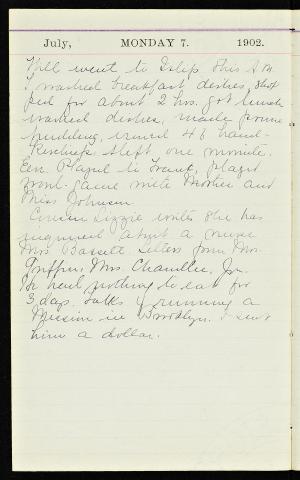 July, MONDAY 7. 1902.
Will went to Islip this A.M.
I washed breakfast dishes, slept
for about 2 hrs. got lunch
washed dishes, made prune
pudding, ironed 48 hand-
kerchiefs slept one minute.
Eve. Played in front, played
game with Mother and
Miss Johnson
Cousin Lizzie writes she has
inquired about a nurse
Mrs Bassett letters from Mrs.
Mrs Chandler, Jr.
for
3 days. talks of running a
Mission in Brooklyn. I sent
him a dollar.